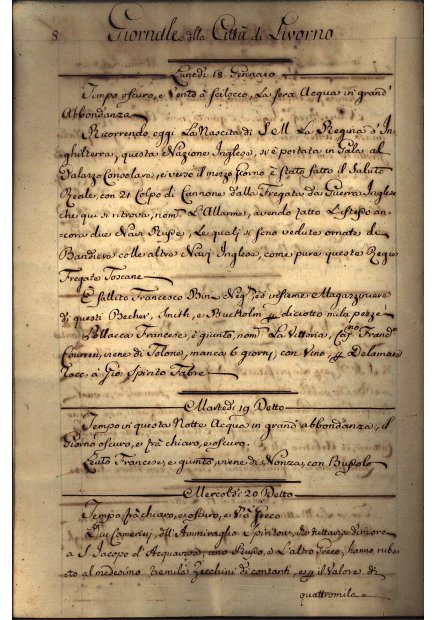 8 Giornale della Città di Livorno
Lunedì 18 Gennaio
Tempo oscuro, e Vento à scilocco, La sera Acqua in grand'
Abbondanza
Ricorrendo, oggi La Nascita di S. M. La Regina d'In=
=ghilterra, questa Nazione Inglese, si è portata in Gala, al
Palazzo Consolare, e verso il mezzo Giorno è stato fatto il Saluto
Reale, con 21 Colpo di Cannone dalla Fregata da Guerra Inglese
che qui si ritrova, nom. L'Allarme, avendo fatto L'istesso an=
cora due Navi Russe, Le quali si sono vedute ornate di
Bandiere colle altre Navi Inglese, come pure queste Regie
Fregate Toscane
È fallito Francesco Bini Neg., ed insieme Magazziniere
di questi Becher, Smith, e diciotto mila pezze
Pollacca Francese, è giunto, nom. La Vittoria, Cap.no Frand.o
viene di Tolone, manca 6 giorni, con Vino
à Gio: Spirito Fabre
Martedì 19 Detto
Tempo in questa Notte, Acqua in grand' abbondanza, il
Giorno oscuro, e frà chiaro, e oscuro.
Leuto Francese, è giunto, viene di Nonza, con Bussolo
Mercoldì 20 Detto
Tempo frà chiaro, e oscuro, e Greco
Due Camerieri, dell' Amminaglio Spiritow, che tuttavia dimora
a S. Jacopo d'Acquaviva, uno Russo, e L'altro Greco, hanno ruba=
to al medesimo tremila Zecchini di contanti, e il Valore di
quattromila